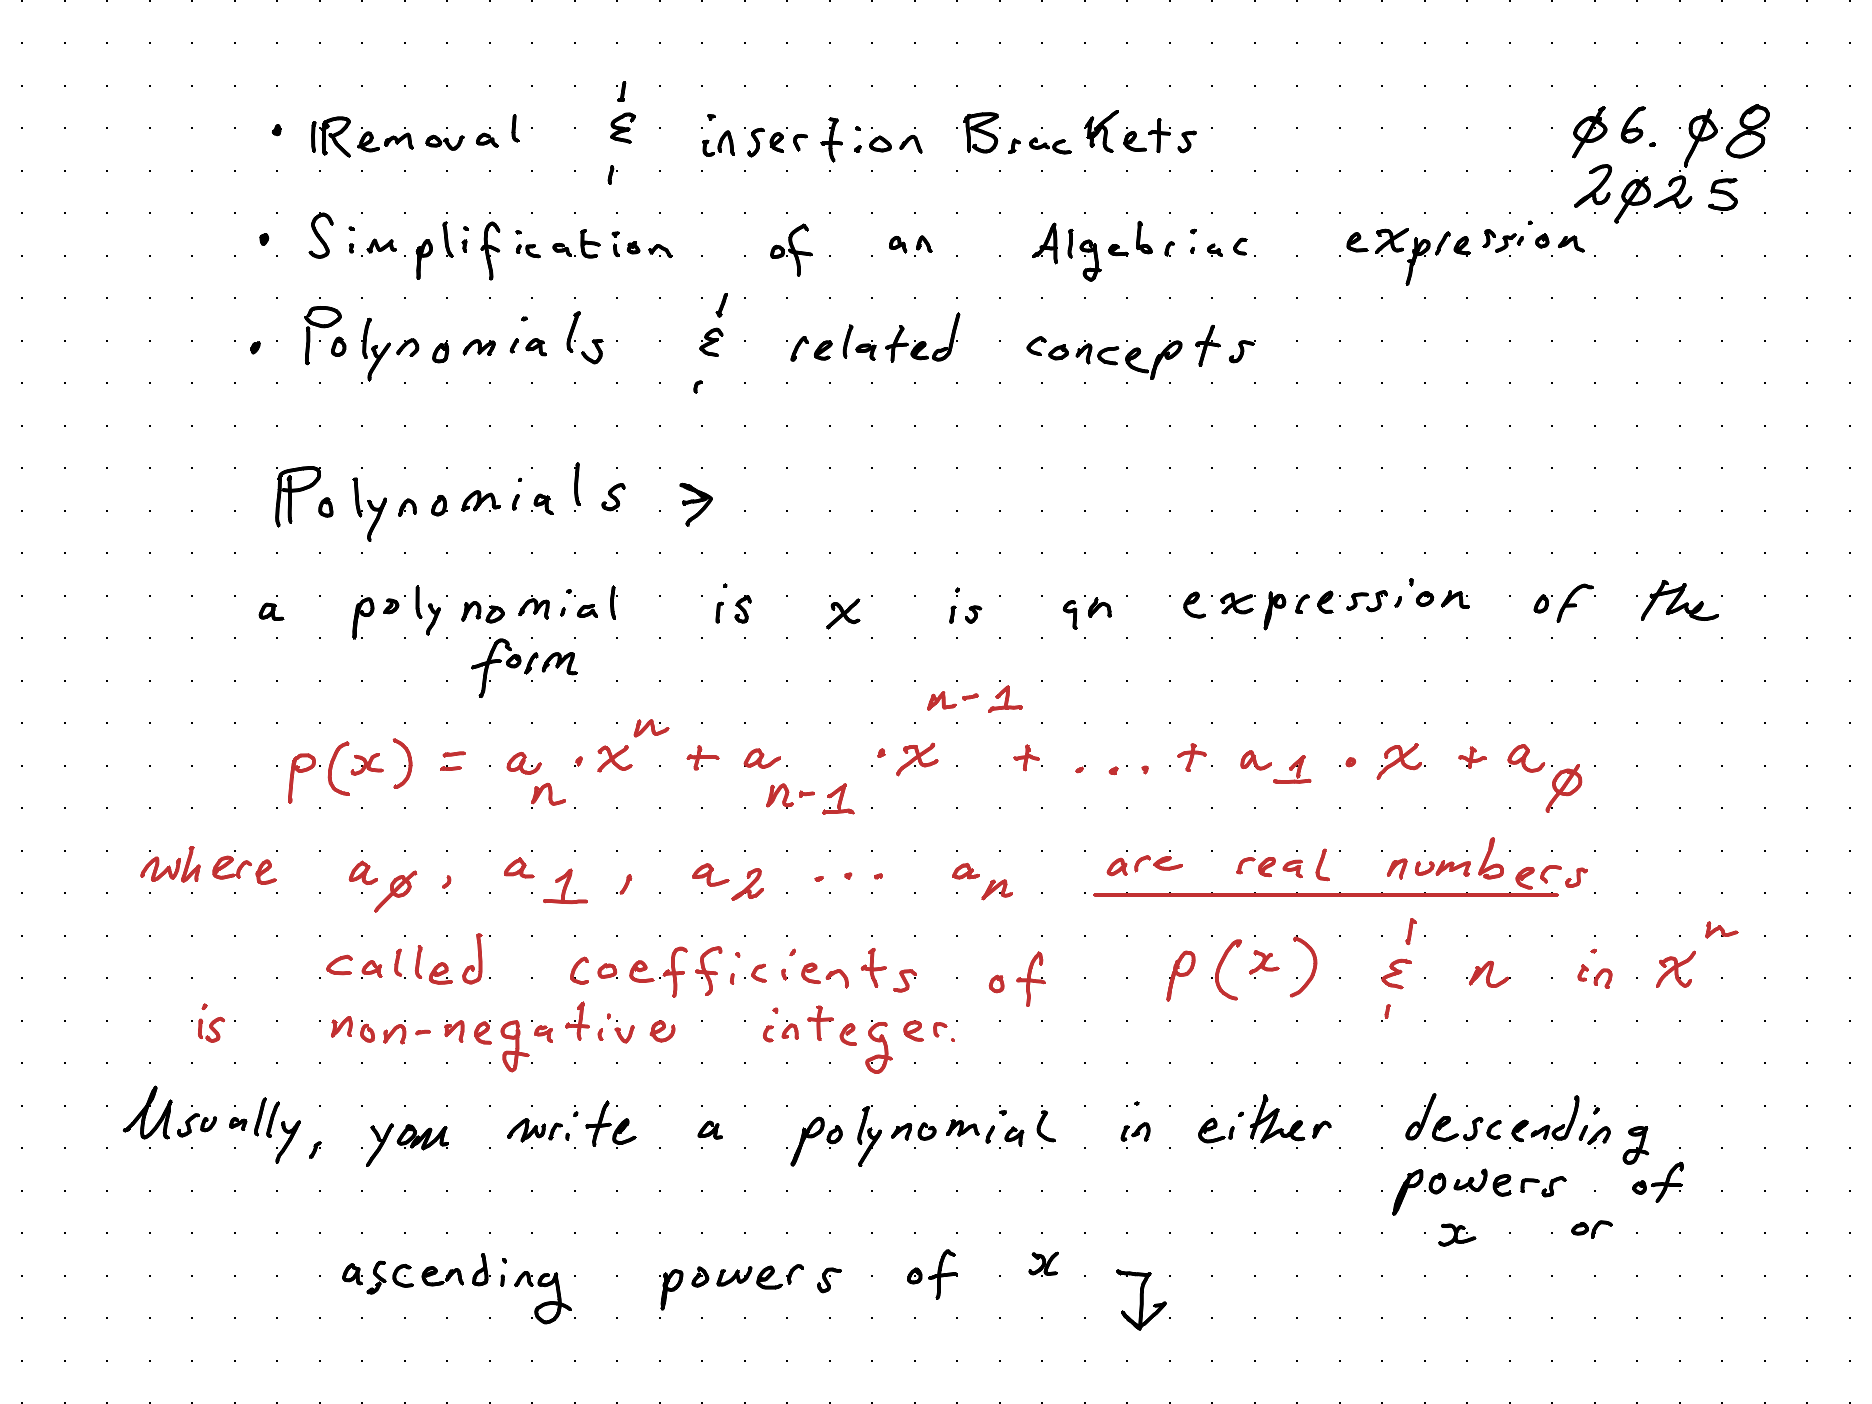 • Removal & insertion Brackets
06.08
2025
• Simplification of an Algebriac expression
• Polynomials & related concepts
Polynomials →
a polynomial is x is an expression of the
form
p(x) = aₙ · xⁿ + aₙ₋₁ · xⁿ⁻¹ + ... + a₁ · x + a₀
where a₀, a₁, a₂ ... aₙ are real numbers
called coefficients of p(x) & n in xⁿ
is non-negative integer.
Usually, you write a polynomial in either descending
powers of
x or
ascending powers of x ↓